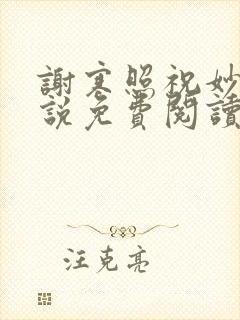 謝寒照祝妙
說免費閱讀
汪克亮